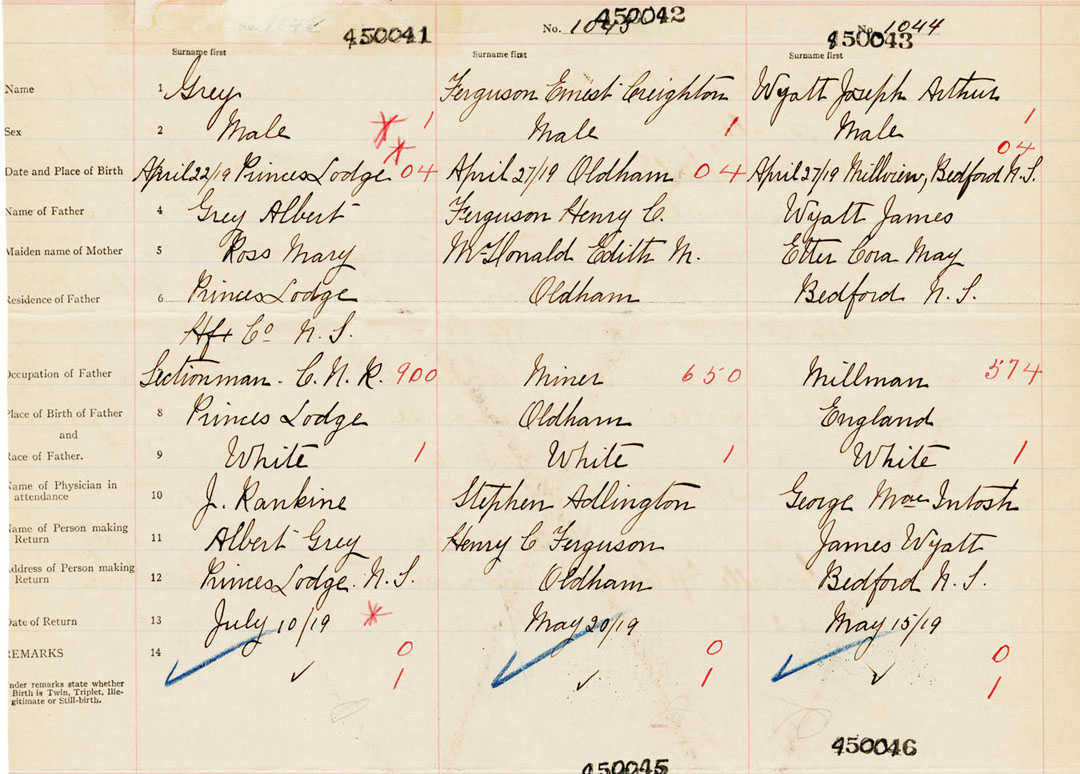 450041 No. 1043 450042 No. 1044 450043
Surname first Surname first Surname first
Name 1 Grey Ferguson Ernest Creighton Wyatt Joseph Arthur
Sex 2 Male 1 Male 1 Male 1
04
Date and Place of Birth April 22/19 Princes Lodge 04 April 27/19 Oldham 04 April 27/19 Millview, Bedford N.S.
Name of Father 4 Grey Albert Ferguson Henry C. Wyatt James
Maiden name of Mother 5 Ross Mary McDonald Edith M. Etter Cora May
Residence of Father 6 Princes Lodge Oldham Bedford N.S.
Hfx Co N.S.
Occupation of Father Sectionman. C.N.R. 900 Miner 650 Millman 574
Place of Birth of Father 8 Princes Lodge Oldham England
and
Race of Father. 9 White 1 White 1 White 1
Name of Physician in
attendance 10 J. Rankine Stephen Adlington George MacIntosh
Name of Person making
Return 11 Albert Grey Henry C Ferguson James Wyatt
Address of Person making
Return 12 Princes Lodge. N.S. Oldham Bedford N.S.
Date of Return 13 July 10/19 May 20/19 May 15/19
REMARKS 14 0 0 0
Under remarks state whether 1 1 1
Birth is Twin, Triplet, Ille-
gitimate or Still-birth.
450045 450046